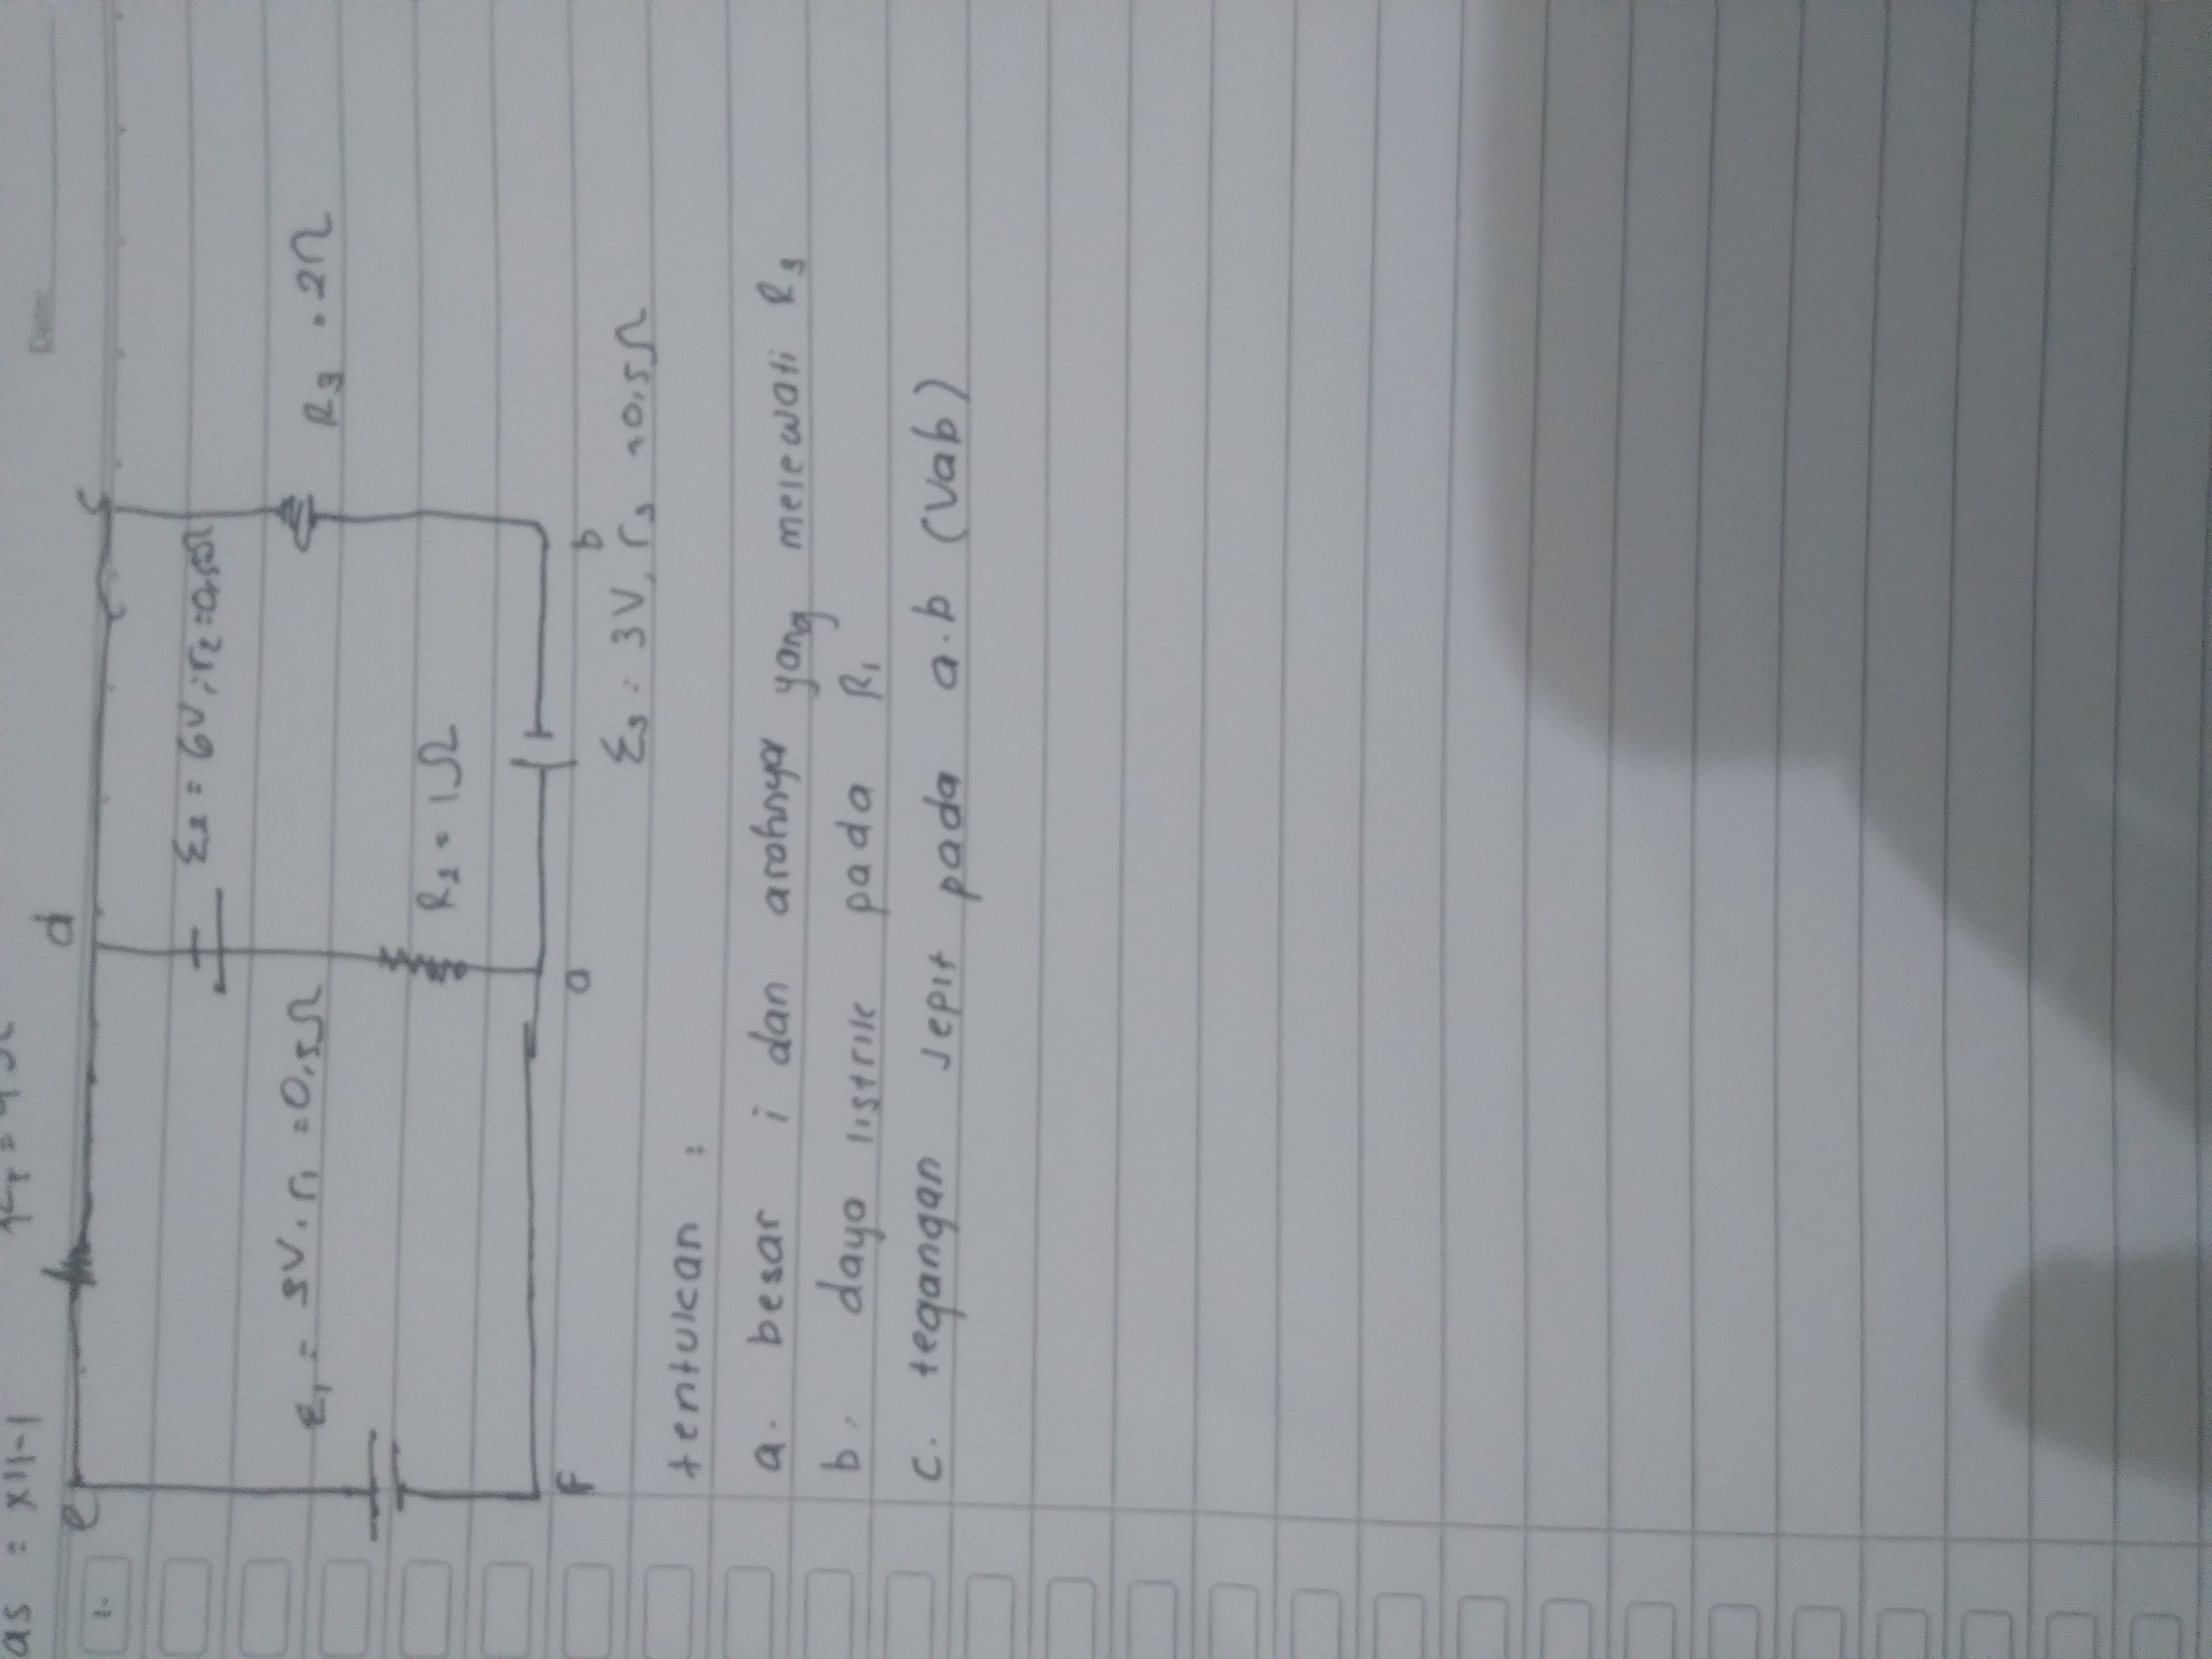 as = XII-1
Date:
1.
e
d
c
E₁ = 3V. r₁ = 0,5Ω
E₂ = 6V ; r₂ =
R₃ = 2Ω
R₂ = 1Ω
f
a
b
Σ₃ = 3V, r₃ = 0,5Ω
tentukan :
a. besar i dan arahnya yang melewati R₃
b. daya listrik pada R₁
c. tegangan jepit pada a.b (Vab)